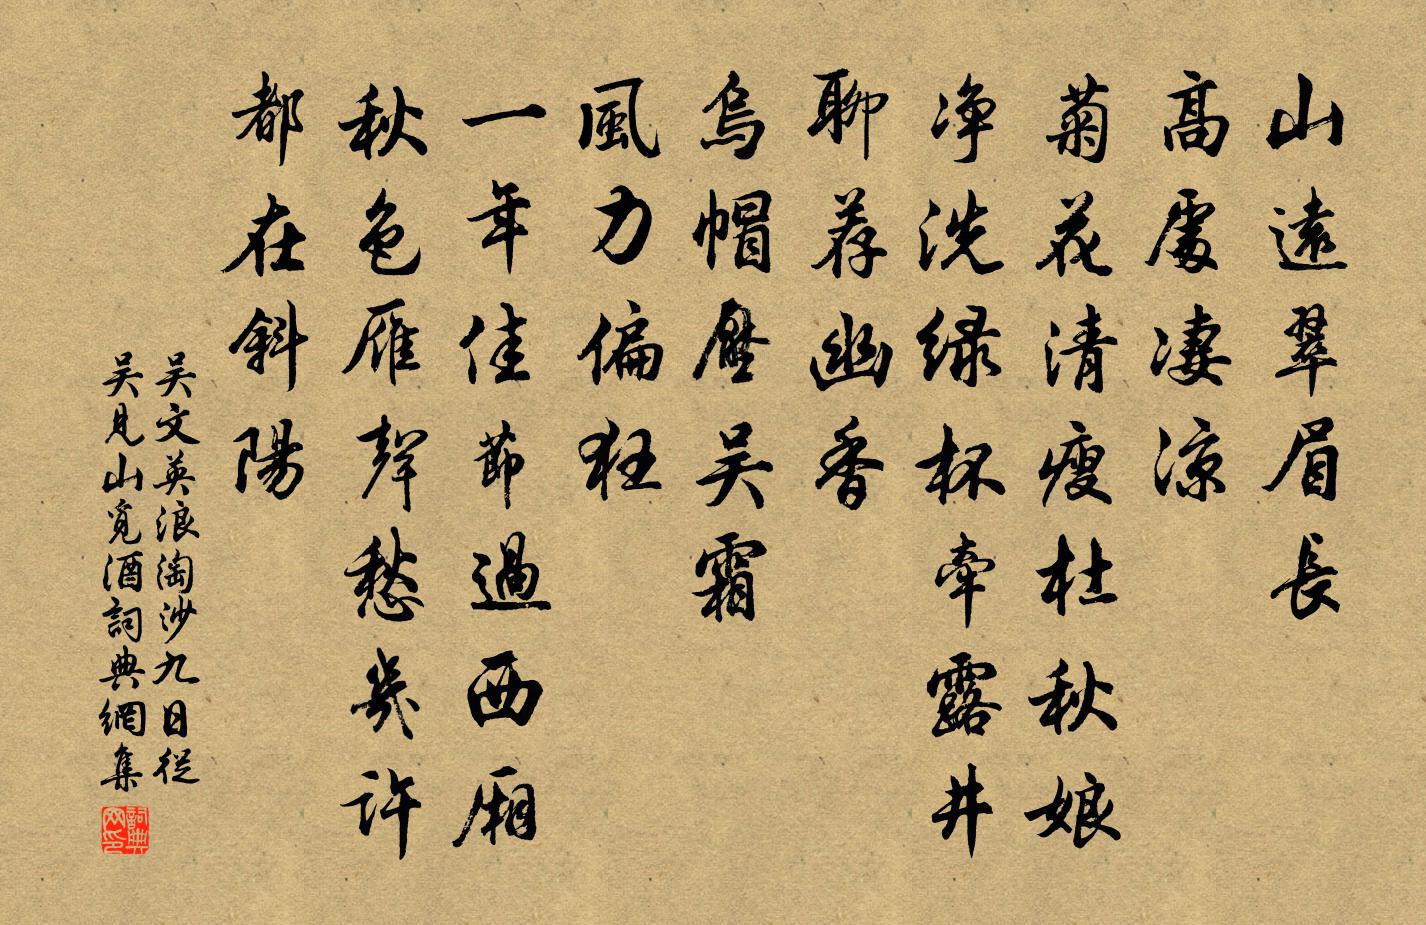 山遠翠眉長
高處凄涼
菊花清瘦杜秋娘
净洗绿杯牽露井
聊荐幽香
烏帽壓吴霜
風力偏狂
一年佳節過西厢
秋色雁聲愁幾許
都在斜陽
吴文英浪淘沙九日從
吴見山覓酒詞典網集
詞典网印